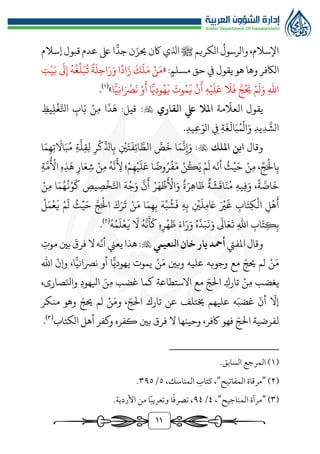 إدارة الشؤون العربية
Arabic Department Of Dawateislami
الإسلام، والرسولُ الكريم ﷺ الذي كان يَحزن جدًّا على عدم قبول إسلام
الكافر وها هو يقول في حق مسلم: «مَنْ مَلَكَ زَادًا وَرَاحِلَةً تُبَلِّغُهُ إِلَى بَيْتِ
اللهِ وَلَمْ يَحُجَّ فَلَا عَلَيْهِ أَنْ يَمُوتَ يَهُودِيًّا أَوْ نَصْرَانِيًّا»(١).
يقول العلّامة الملا علي القاري ﷺ: قيل: هَذَا مِنْ بَابِ التَّغْلِيظِ
الشَّدِيدِ وَالْمُبَالَغَةِ فِي الوَعِيدِ.
وقال ابن الملك ﷺ: قيل: وَإِنَّمَا خَصَّ الطَّائِفَتَيْنِ بِالذِّكْرِ لِقِلَّةِ مُبَالَاتِهِمَا
بِالْحَجِّ، مِنْ حَيْثُ إِنَّه لَمْ يَكُنْ مَفْرُوضًا عَلَيْهِمْ؛ لِأَنَّهُ مِنْ شِعَارِ هَذِهِ الْأُمَّةِ
خَاصَّةً، وَفِيهِ مُنَاقَشَةٌ ظَاهِرَةٌ وَالْأَظْهَرُ أَنَّ وَجْهَ التَّخْصِيصِ كَوْنُهُمَا مِنْ
أَهْلِ الْكِتَابِ غَيْرَ عَامِلِينَ بِهِ فَشُبِّهَ بِهِمَا مَنْ تَرَكَ الْحَجَّ حَيْثُ لَمْ يَعْمَلْ
بِكِتَابِ اللهِ تَعَالَى وَنَبَذَهُ وَرَاءَ ظَهْرِهِ كَأَنَّهُ لَا يَعْلَمُهُ(٢).
وقال المفتي أحمد يار خان النعيمي ﷺ: هذا يعني أنّه لا فرق بين موتِ
مَنْ لم يحجّ مع وجوبه عليه وبين مَنْ يموت يهوديًّا أو نصرانيًّا، وإنّ الله
يغضب مِنْ تاركِ الحجّ مع الاستطاعة كما غضب مِنَ اليهودِ والنّصارى،
إلّا أنّ غضبَه عليهم يختلف عن تارك الحجّ، ومَنْ لم يحجّ وهو منكر
لفرضية الحجّ فهو كافر، وحينها لا فرق بين كفره وكفر أهل الكتاب(٣).
(١) المرجع السابق.
(٢) "مرقاة المفاتيح"، كتاب المناسك، ٥/ ٣٩٥.
(٣) "مرآة المناجيح"، ٤/ ٩٤، تصرفًا وتعريبًا من الأردية.
١١